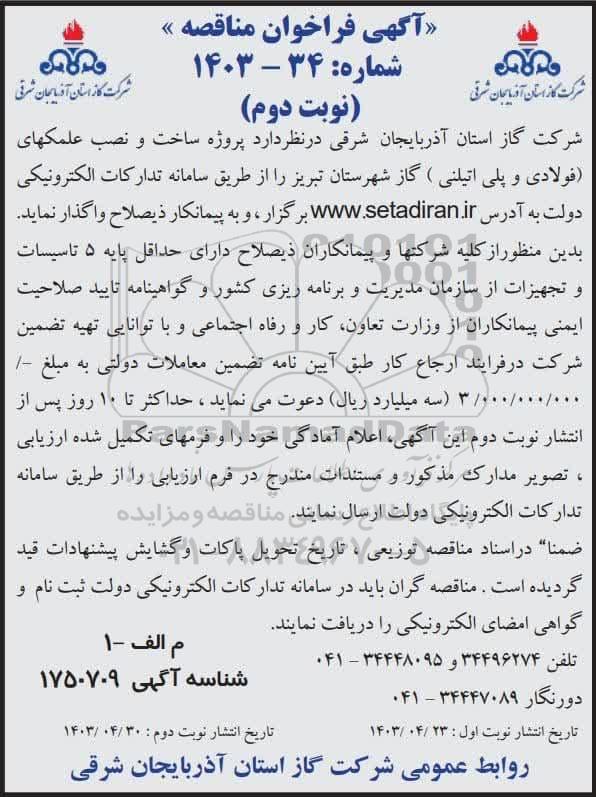 «آگهی فراخوان مناقصه »
شماره: ۳۴ – ۱۴۰۳
(نوبت دوم)
شرکت گاز استان آذربایجان شرقی
شرکت گاز استان آذربایجان شرقی
شرکت گاز استان آذربایجان شرقی درنظردارد پروژه ساخت و نصب علمکهای
(فولادی و پلی اتیلنی ) گاز شهرستان تبریز را از طریق سامانه تدارکات الکترونیکی
دولت به آدرس www.setadiran.ir برگزار ، و به پیمانکار ذیصلاح واگذار نماید.
بدین منظورازکلیه شرکتها و پیمانکاران ذیصلاح دارای حداقل پایه ۵ تاسیسات
و تجهیزات از سازمان مدیریت و برنامه ریزی کشور و گواهینامه تایید صلاحیت
ایمنی پیمانکاران از وزارت تعاون، کار و رفاه اجتماعی و با توانایی تهیه تضمین
شرکت درفرایند ارجاع کار طبق آیین نامه تضمین معاملات دولتی به مبلغ –/
۳/۰۰۰/۰۰۰/۰۰۰ (سه میلیارد ریال) دعوت می نماید ، حداکثر تا ۱۰ روز پس از
انتشار نوبت دوم این آگهی، اعلام آمادگی خود را و فرمهای تکمیل شده ارزیابی
، تصویر مدارک مذکور و مستندات مندرج در فرم ارزیابی را از طریق سامانه
تدارکات الکترونیکی دولت ارسال نمایند.
ضمنا“ دراسناد مناقصه توزیعی ، تاریخ تحویل پاکات وگشایش پیشنهادات قید
گردیده است . مناقصه گران باید در سامانه تدارکات الکترونیکی دولت ثبت نام و
گواهی امضای الکترونیکی را دریافت نمایند.
تلفن ۳۴۴۹۶۲۷۴ و ۳۴۴۴۸۰۹۵ – ۰۴۱
دورنگار ۳۴۴۴۷۰۸۹ – ۰۴۱
م الف –۱
شناسه آگهی ۱۷۵۰۷۰۹
تاریخ انتشار نوبت اول : ۲۳ /۰۴ /۱۴۰۳
تاریخ انتشار نوبت دوم : ۳۰ /۰۴ /۱۴۰۳
روابط عمومی شرکت گاز استان آذربایجان شرقی
ParsNamadData
پایگاه اطلاع رسانی مناقصه و مزایده
۰۲۱-۸۸۳۴۹۶۷۰-۵